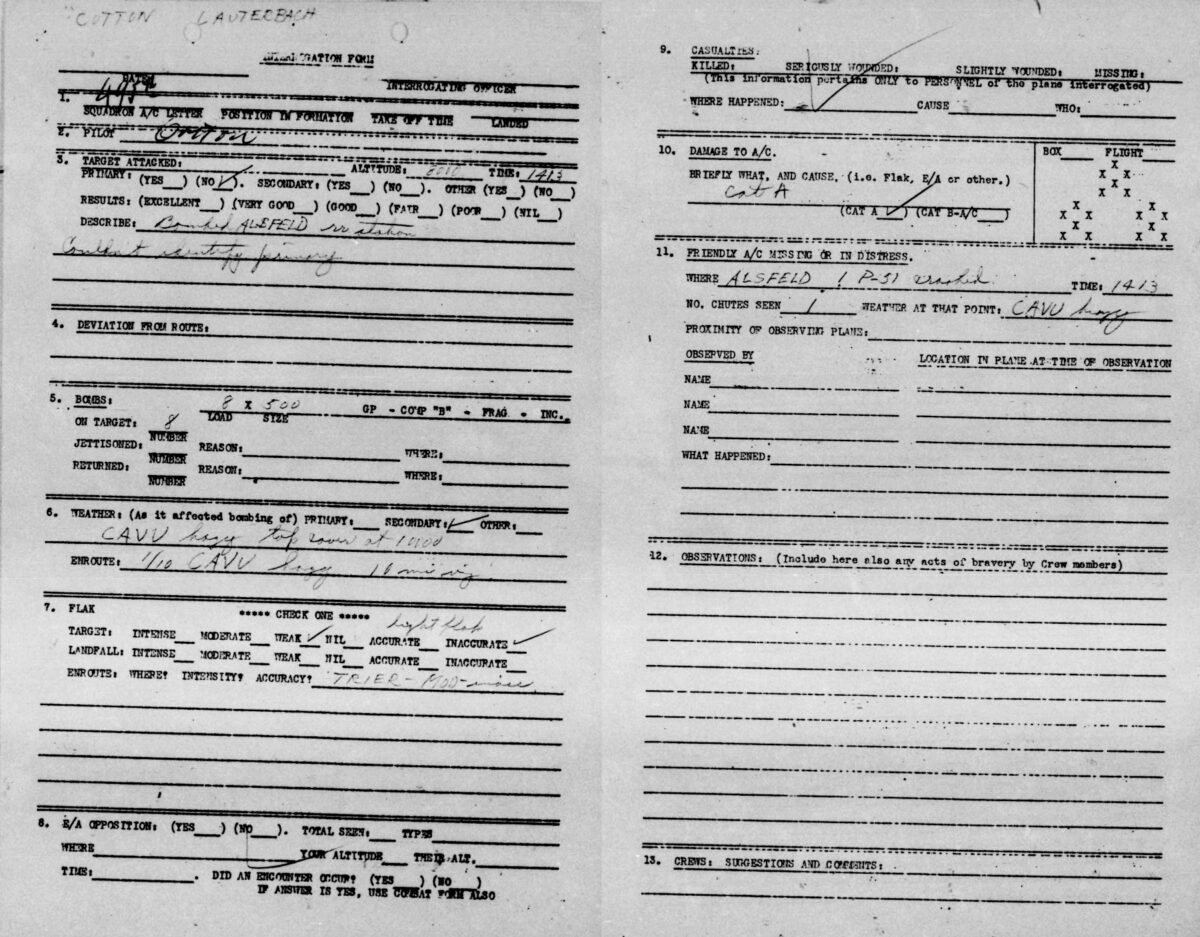 COTTON LAUTERBACH
INTERROGATION FORM
DATE:
INTERROGATING OFFICER
1. 495
SQUADRON A/C LETTER POSITION IN FORMATION TAKE OFF TIME LANDED
2. PILOT Cotton
3. TARGET ATTACKED: ALTITUDE: TIME: 1413
PRIMARY: (YES___) (NO ✓). SECONDARY: (YES___) (NO___). OTHER (YES___) (NO___)
RESULTS: (EXCELLENT___) (VERY GOOD___) (GOOD___) (FAIR___) (POOR___) (NIL___)
DESCRIBE: Bombed ALSFELD rr station
Couldn't identify primary
4. DEVIATION FROM ROUTE:
5. BOMBS: 8 X 500 GP - COMP "B" - FRAG - INC.
LOAD SIZE
ON TARGET: 8
NUMBER
JETTISONED: REASON: WHERE:
NUMBER
RETURNED: REASON: WHERE:
NUMBER
6. WEATHER: (As it affected bombing of) PRIMARY:___ SECONDARY: ✓ OTHER:___
CAVU hazy top cover at
ENROUTE: 1/10 CAVU hazy 10 mi
7. FLAK ***** CHECK ONE *****
light flak
TARGET: INTENSE___ MODERATE___ WEAK ✓ NIL___ ACCURATE___ INACCURATE ✓
LANDFALL: INTENSE___ MODERATE___ WEAK___ NIL___ ACCURATE___ INACCURATE___
ENROUTE: WHERE? INTENSITY? ACCURACY? TRIER - MOD -
8. E/A OPPOSITION: (YES___) (NO___). TOTAL SEEN:___ TYPES
WHERE YOUR ALTITUDE THEIR ALT.
TIME: . DID AN ENCOUNTER OCCUR? (YES___) (NO___)
IF ANSWER IS YES, USE COMBAT FORM ALSO
9. CASUALTIES:
KILLED: SERIOUSLY WOUNDED: SLIGHTLY WOUNDED: MISSING:
(This information pertains ONLY to PERSONNEL of the plane interrogated)
WHERE HAPPENED: CAUSE WHO:
10. DAMAGE TO A/C. BOX FLIGHT
BRIEFLY WHAT, AND CAUSE, (i.e. Flak, E/A or other.)
Cat A
(CAT A ✓) (CAT B-A/C___)
X
X X
X X
X X
X X X X
X X
X X X X
11. FRIENDLY A/C MISSING OR IN DISTRESS.
WHERE ALSFELD 1 P-51 crashed TIME: 1413
NO. CHUTES SEEN 1 WEATHER AT THAT POINT: CAVU hazy
PROXIMITY OF OBSERVING PLANE:
OBSERVED BY LOCATION IN PLANE AT TIME OF OBSERVATION
NAME
NAME
NAME
WHAT HAPPENED:
12. OBSERVATIONS: (Include here also any acts of bravery by Crew members)
13. CREWS: SUGGESTIONS AND COMMENTS: